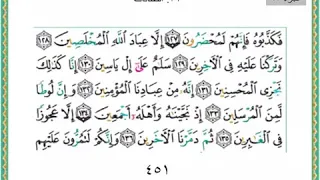 فَكَذَّبُوهُ فَإِنَّهُمْ لَمُحْضَرُونَ ١٢٧ إِلَّا عِبَادَ اللَّهِ الْمُخْلَصِينَ ١٢٨
وَتَرَكْنَا عَلَيْهِ فِي الْآخِرِينَ ١٢٩ سَلَامٌ عَلَىٰ إِلْ يَاسِينَ ١٣٠ إِنَّا كَذَٰلِكَ
نَجْزِي الْمُحْسِنِينَ ١٣١ إِنَّهُ مِنْ عِبَادِنَا الْمُؤْمِنِينَ ١٣٢ وَإِنَّ لُوطًا
لَّمِنَ الْمُرْسَلِينَ ١٣٣ إِذْ نَجَّيْنَاهُ وَأَهْلَهُ أَجْمَعِينَ ١٣٤ إِلَّا عَجُوزًا
فِي الْغَابِرِينَ ١٣٥ ثُمَّ دَمَّرْنَا الْآخَرِينَ ١٣٦ وَإِنَّكُمْ لَتَمُرُّونَ عَلَيْهِم
٤٥١